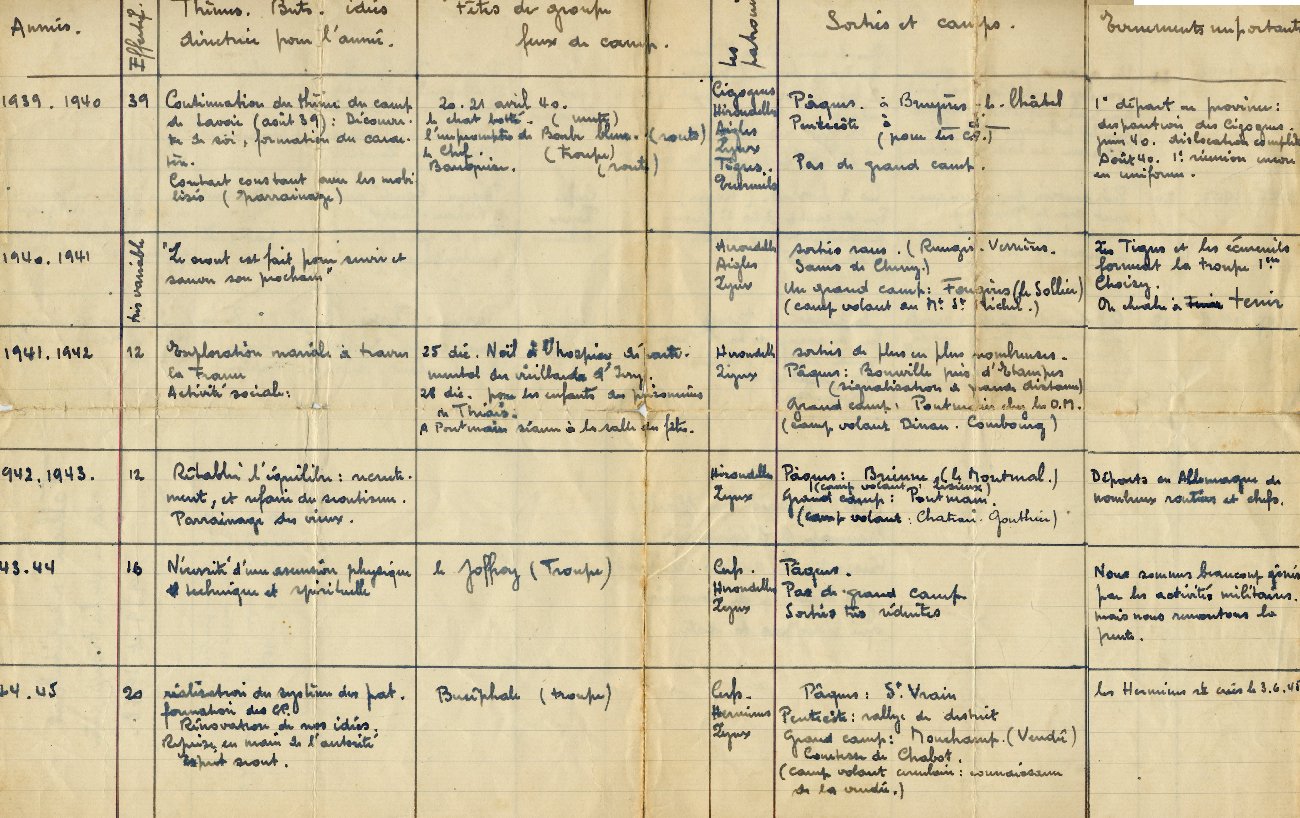 Année.
Effectif.
Thèmes. Buts. idées
directrices pour l'année.
Fêtes de groupe
feux de camp.
les patrouilles
Sorties et camps.
Evénements importants
1939. 1940
39
Continuation du thème du camp
de Savoie (août 39) : Découver-
te de soi, formation du carac-
tère.
Contact constant avec les mobi
lisés (parrainage)
20. 21 avril 40.
le chat botté. (meute)
l'impromptu de Barbe bleue. (route)
le Chef. (troupe)
Banquise. (route)
Cigognes
Hirondelles
Aigles
Lynx
Tigres.
Ecureuils
Pâques. à Bruyères-le-Châtel
Pentecôte à
(pour les C.P.)
Pas de grand camp.
1er départ en province :
disparition des Cigognes.
juin 40. dislocation complète
Août 40. 1e réunion encore
en uniforme.
1940. 1941
très variable
"Le scout est fait pour servir et
sauver son prochain"
Hirondelles
Aigles
Lynx
sorties rares. (Rungis. Verrières.
Un grand camp: Fougères (le Sollier)
(camp volant au Mt St Michel.)
Les Tigres et les écureuils
forment la troupe 1ère
Choisy.
On cherche à tenir
1941. 1942
12
Exploration mariale à travers
la France
Activité sociale:
25 déc. Noël à l'hospice départe-
mental des vieillards d'Ivry.
28 déc. pour les enfants des prisonniers
de Thiais.
A Pontmain séance à la salle des fêtes.
Hirondelles
Lynx
sorties de plus en plus nombreuses.
Pâques: Bonville près d'Etampes
(signalisation à grande distance)
Grand camp: Pontmain chez les O.M.
(camp volant Dinan. Combourg)
942. 1943.
12
Rétablir l'équilibre : recrute-
ment, et refaire du scoutisme.
Parrainage des vieux.
Hirondelles
Lynx
Pâques: Brienne (le Montmal.)
(camp volant : Lisieux)
Grand camp: Pontmain.
(camp volant. Chateau. Gonthier)
Départs en Allemagne de
nombreux routiers et chefs.
43. 44
16
Nécessité d'une ascension physique
technique et spirituelle
le Joffroy (Troupe)
Cerfs.
Hirondelles
Lynx
Pâques.
Pas de grand camp
Sorties très réduites
Nous sommes beaucoup gênés
par les activités militaires.
mais nous remontons la
pente.
44. 45
20
réalisation du système des pat.
formation des CP.
Rénovation de nos idées.
Reprise en main de l'autorité
esprit scout.
Bucéphale (troupe)
Cerfs.
Hermines
Lynx
Pâques: St Vrain
Pentecôte: rallye de district
Grand camp: Mouchamp. (Vendée)
Comtesse de Chabot.
(camp volant circulaire : connaissance
de la vendée.)
les Hermines été créés le 3.6.45